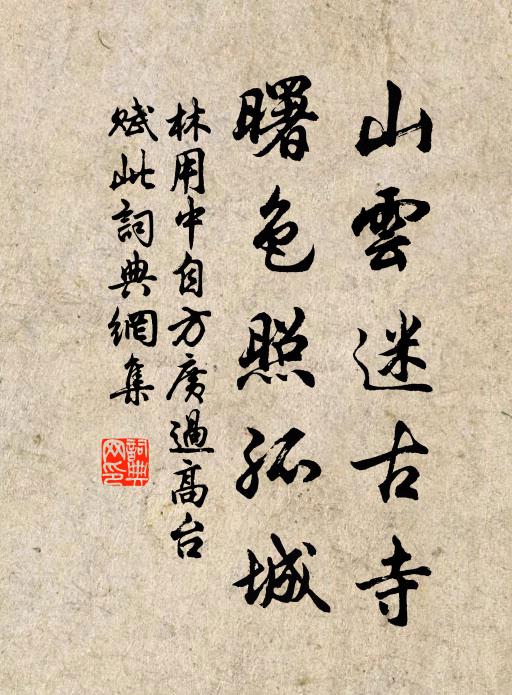 山雲迷古寺
曙色照孤城
林用中自方廣過高台
賦此詞典網集
詞典网印